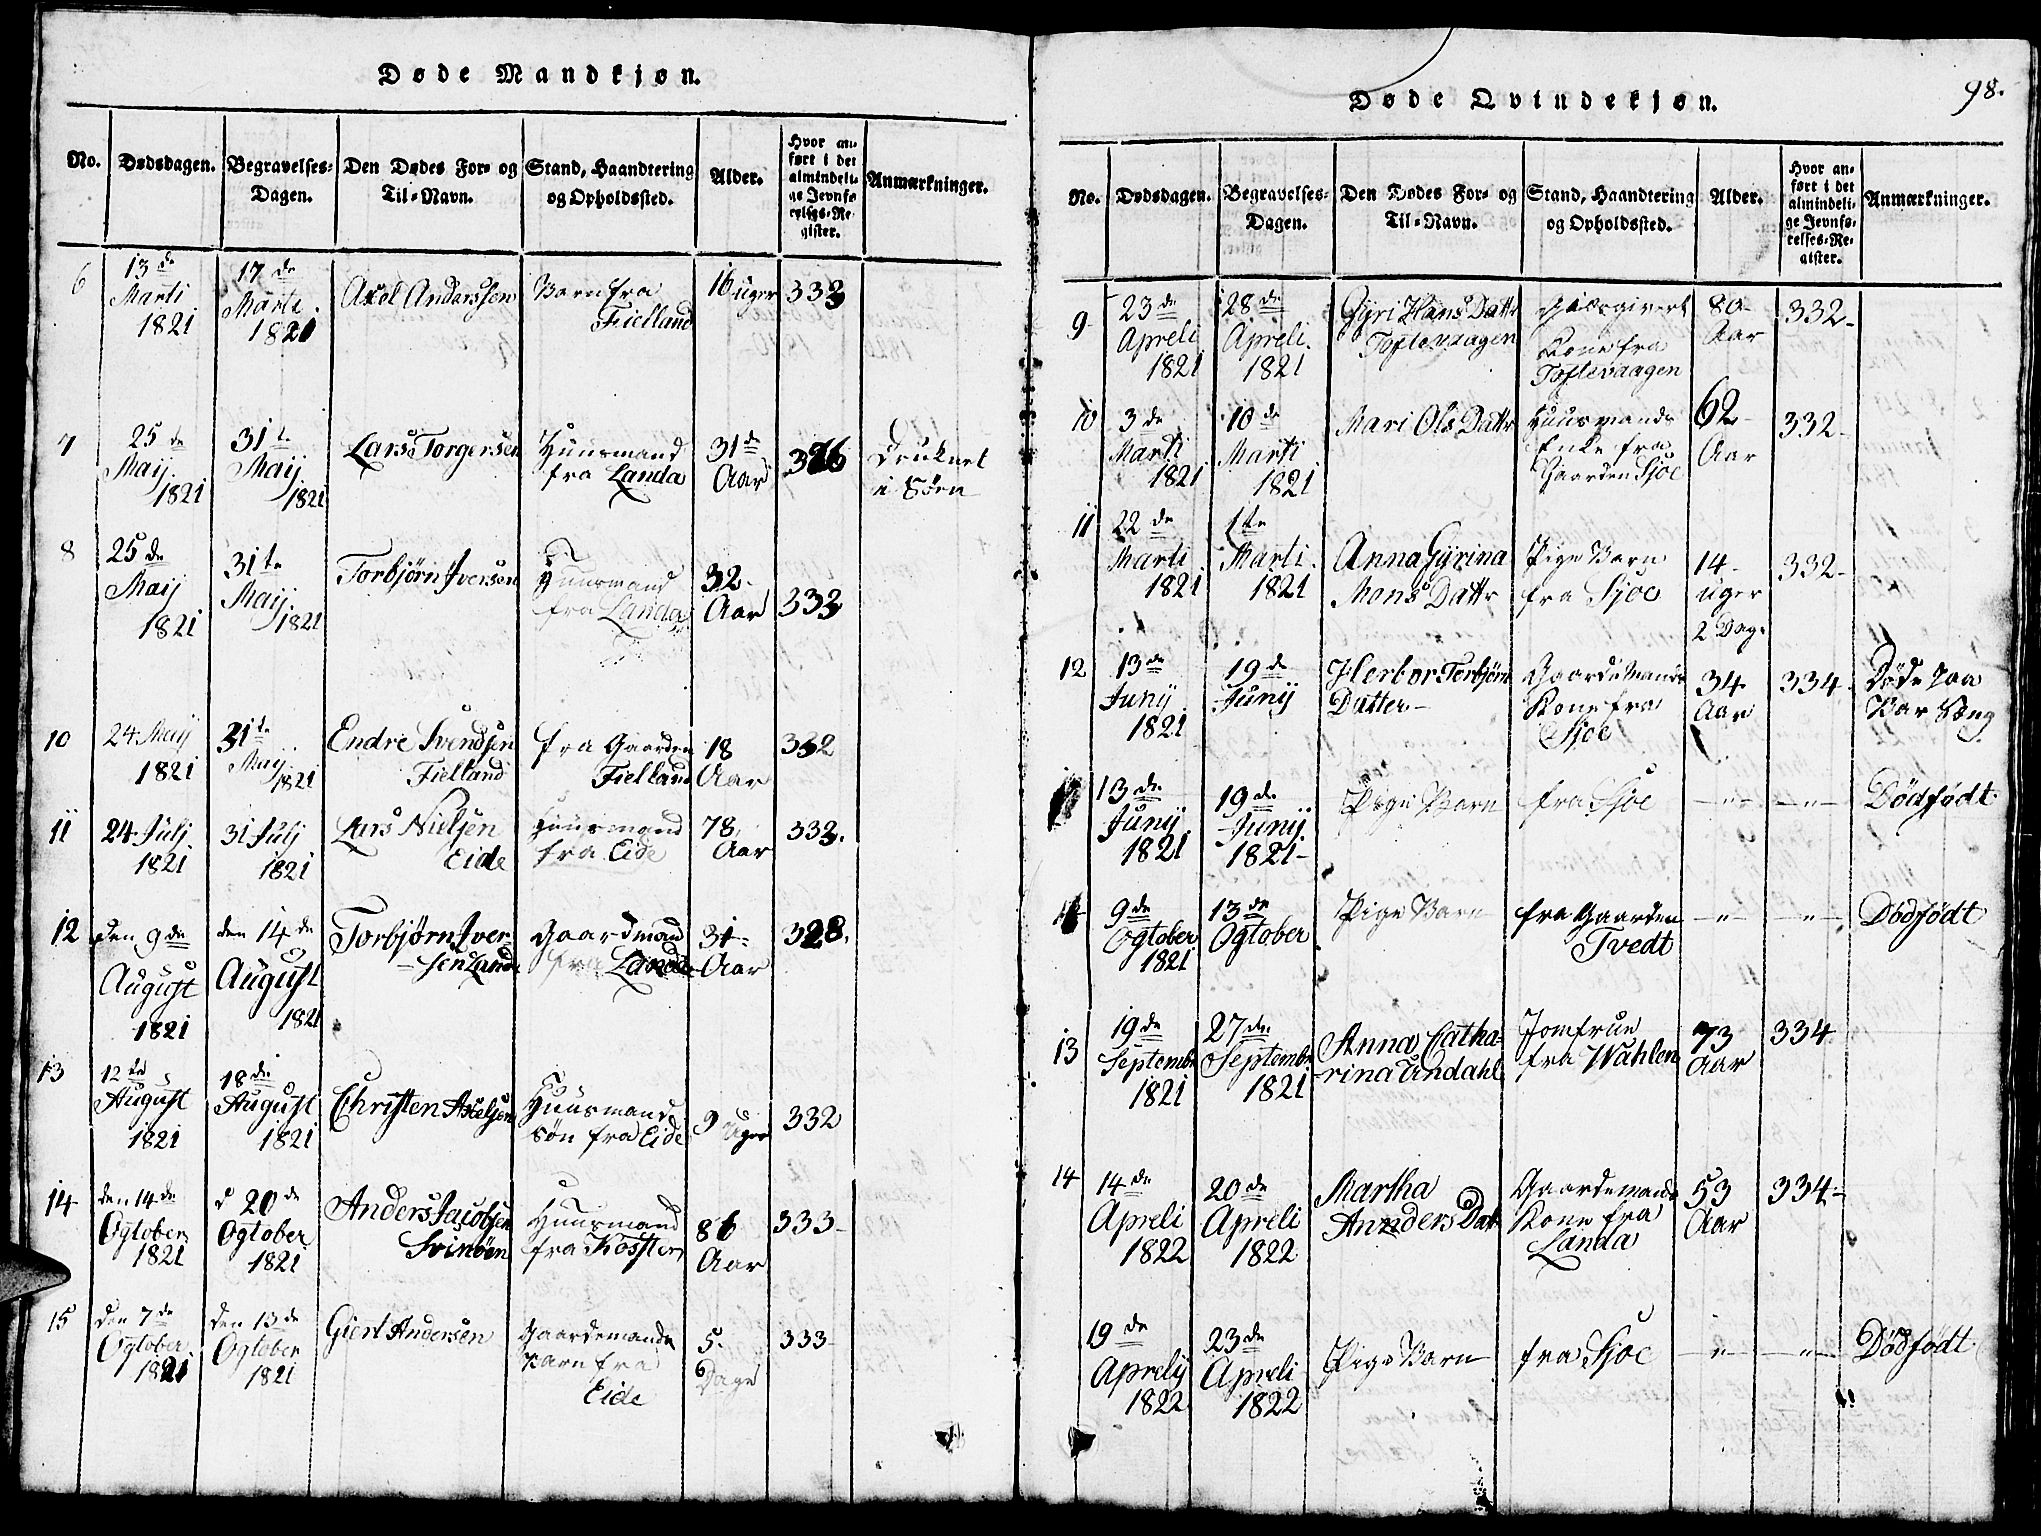 Døde Mandkjøn.
No. Dødsdagen. Begravelses-Dagen. Den Dødes For- og Til-Navn. Stand, Haandtering og Opholdssted. Alder. Hvor anført i det almindelige Jevnførelses-Register. Anmærkninger.
6 13de Marti 1821 17de Marti 1821 Axel Anderssen Barn fra Fielland 16 uger 333
7 25de Maij 1821 31te Maij 1821 Lars Torgersen Huusmand fra Landa 31de Aar 326 Druknet i Søen
8 25de Maij 1821 31te Maij 1821 Torbjørn Iversen Huusmand fra Landa 32 Aar 333
10 24 Maij 1821 31te Maij 1821 Endre Svendsen Fielland fra Gaarden Fielland 18 Aar 332
11 24 Julj 1821 31 Julj 1821 Lars Nielsen Eide Huusmand fra Eide 78 Aar 333.
12 den 9de August 1821 den 14de August 1821 Torbjørn Iver-sen Landa Gaardmand fra Landa 31 Aar 328.
13 12te August 1821 18de August 1821 Christen Axelsen Huusmands søn fra Eide 9 Uger 332
14 den 14de Ogtober 1821 d 20de Ogtober 1821 Anders Jacobsen Svinøen Huusmand fra Kosster 86 Aar 333
15 den 7de Ogtober 1821 den 13de Ogtober 1821 Giert Andersen Gaardemands Barn fra Eide 5. Dage 333
98.
Døde Qvindekjøn.
No. Dødsdagen. Begravelses-Dagen. Den Dødes For- og Til-Navn. Stand, Haandtering og Opholdssted. Alder. Hvor anført i det almindelige Jevnførelses-Register. Anmærkninger.
9 23de Apreli 1821 28de Apreli 1821 Gyri Hans Dattr Toftevaagen Kone fra Toftevaagen 80 Aar 332
10 3de Marti 1821 10de Marti 1821 Mari Ols Dattr Huusmands Enke fra Gaarden Sjoe 62 Aar 332
11 22de Marti 1821 1te Marti 1821 Anna Gyrina Mons Dattr Pige Barn fra Sjoe 14 uger 2 Dage 332
12 13de Junij 1821 19de Junij Herbor Torbjørn Datter Gaardemands Kone fra Sjoe 34 Aar 334 Døde paa Bar Seng
13de Junij 1821 19de Junij 1821 Pige Barn fra Sjoe -"- -"- Dødfødt
9de Ogtober 1821 13de Ogtober Pige Barn fra Gaarden Tvedt -"- -"- Dødfødt
13 19de Septembr 1821 27de Septembr 1821 Anna Catha-rina Undahl Jomfrue fra Wahlen 73 Aar 334
14 14de Apreli 1822 20de Apreli 1822 Martha Annders Dat Gaardemands Kone fra Landa 53 Aar 334
19de Aprelij 1822 23de Apreli 1822 Pige Barn fra Sjoe -"- -"- Dødfødt